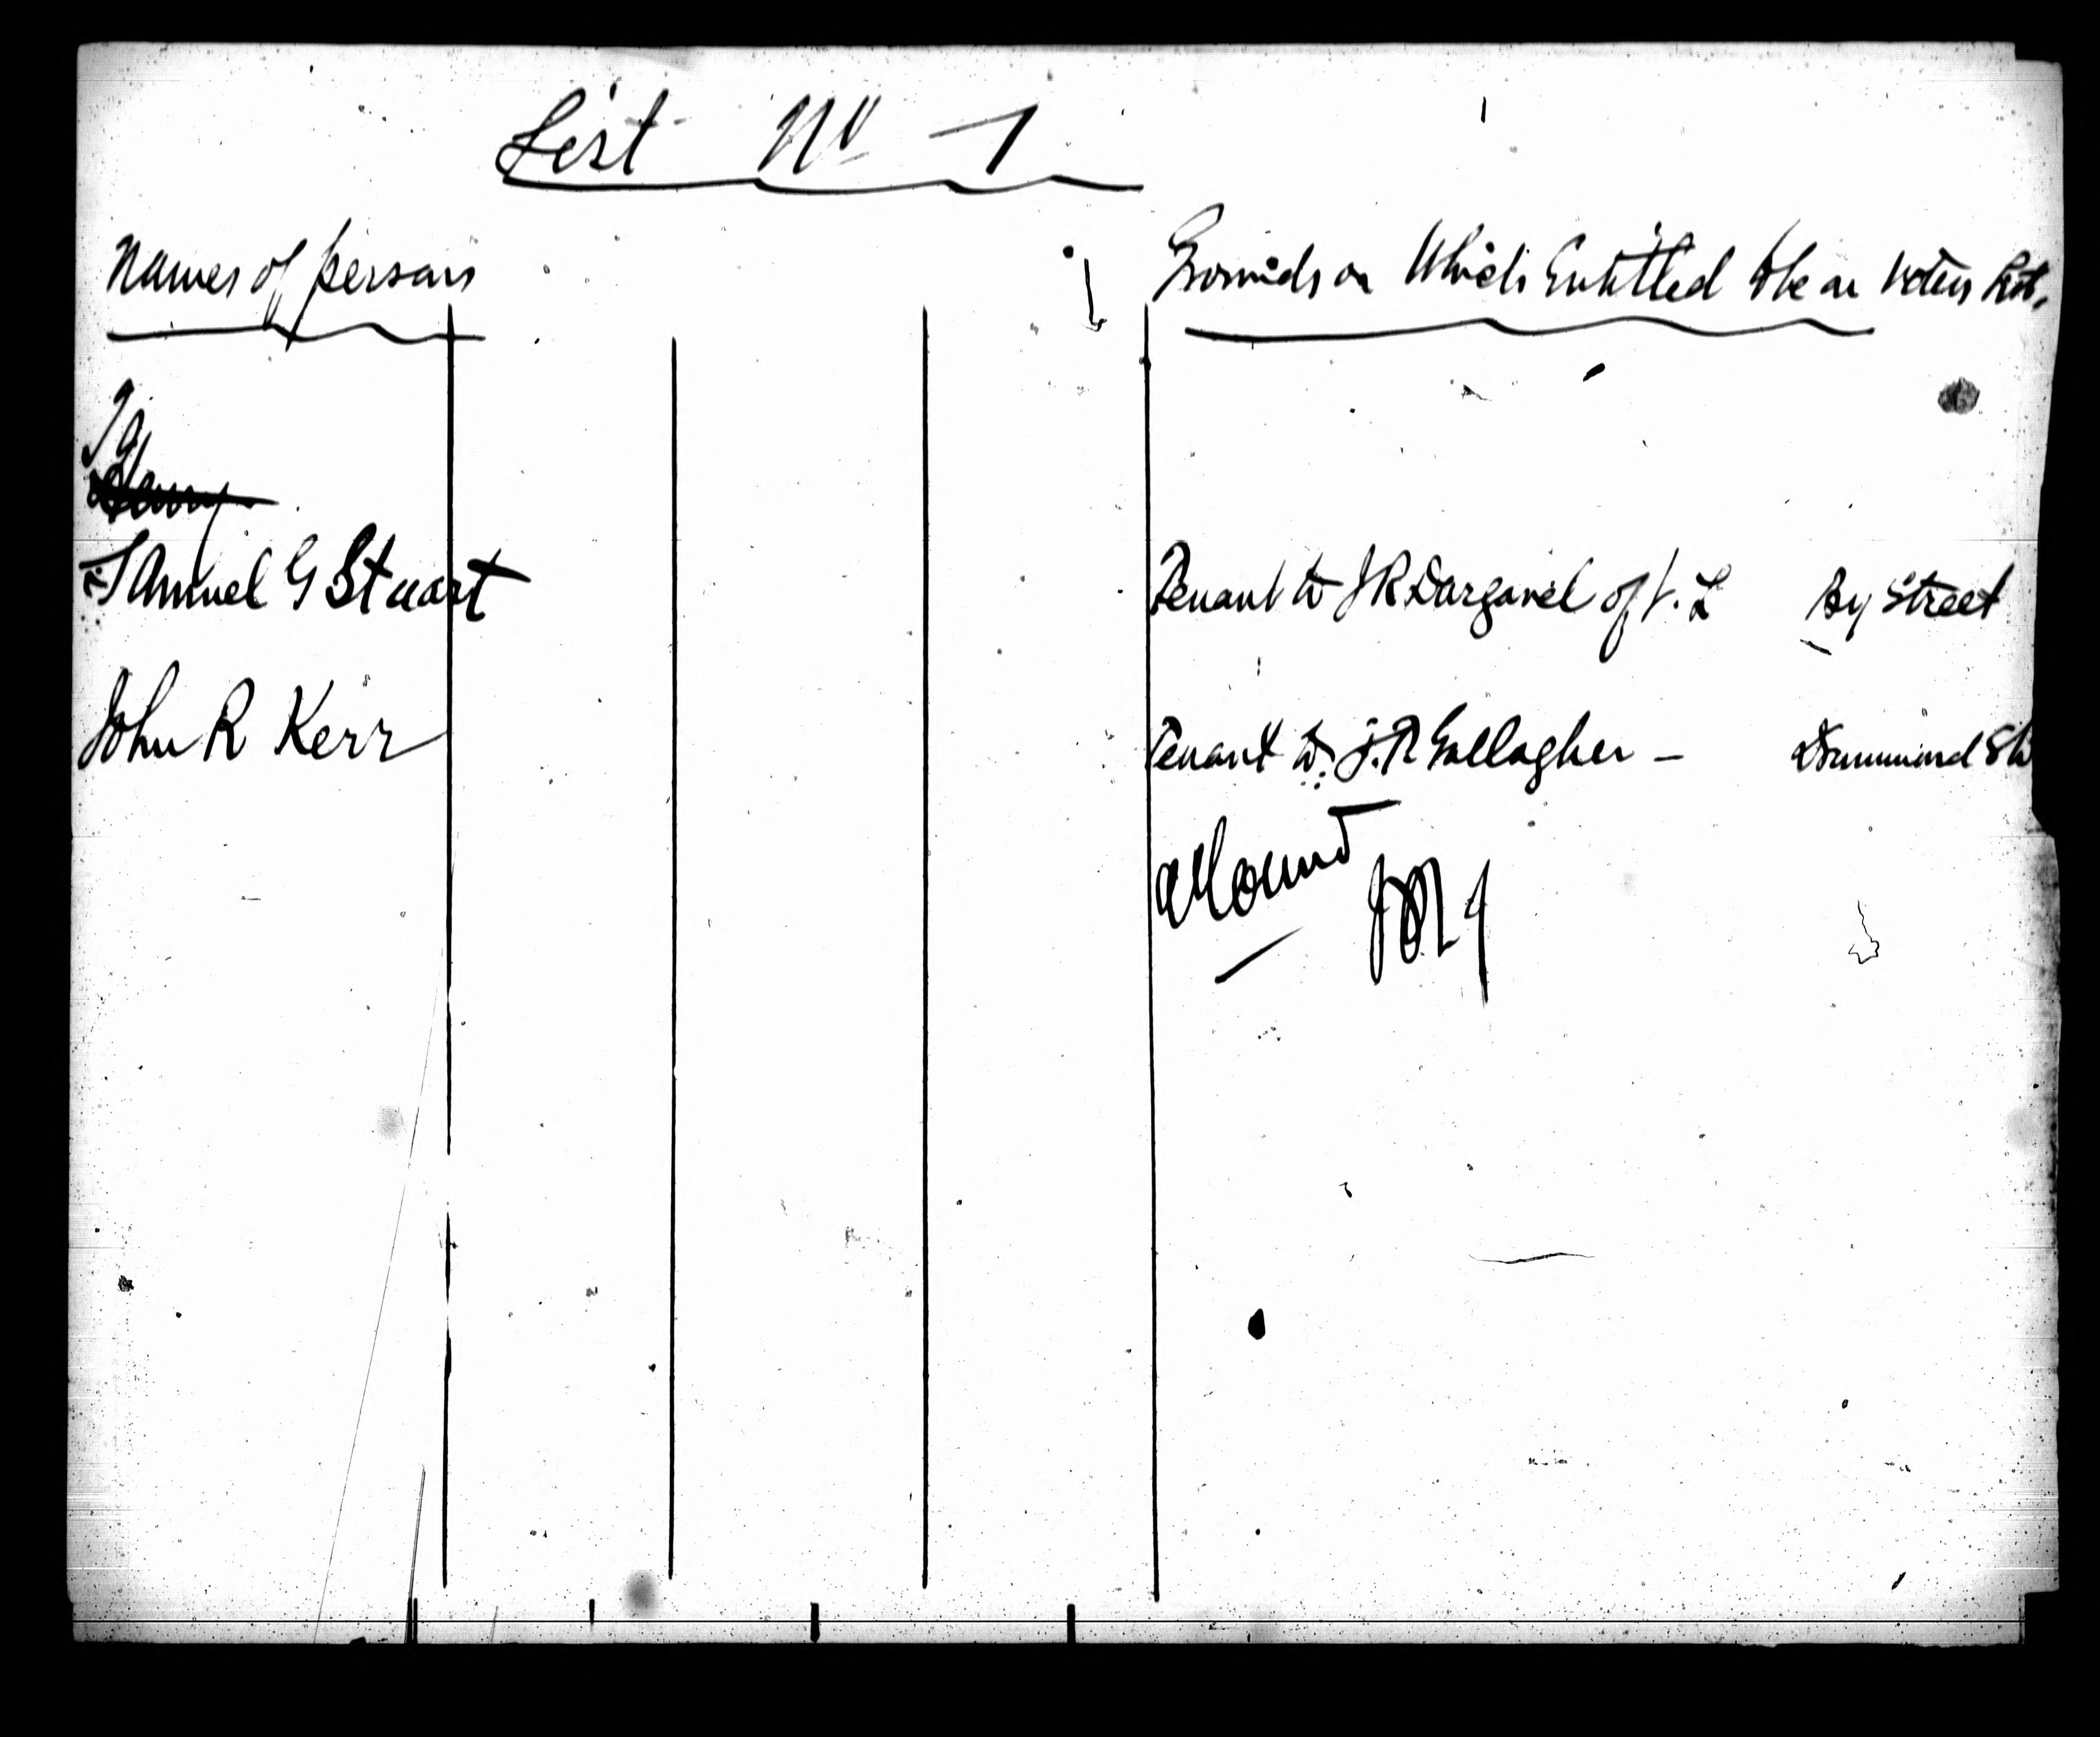 List No 1
Names of persons
Grounds on Which Entitled to be on Voters List.
Samuel G Stuart
Tenant to J R Dargavel of V. L By Street
John R Kerr
Tenant to J. R Gallagher - Drummond St
allowed